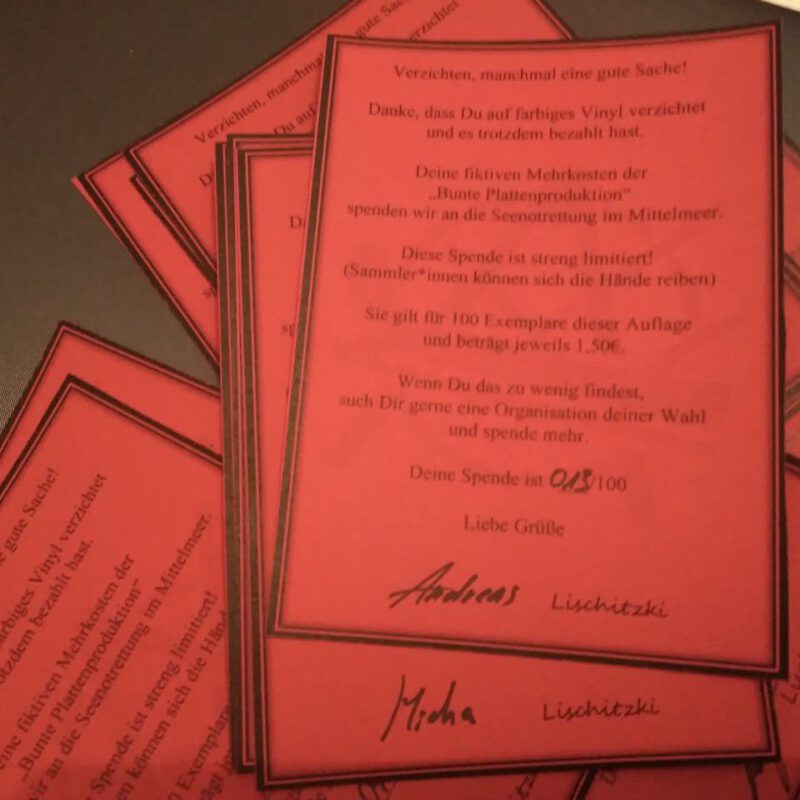 Verzichten, manchmal eine gute Sache!
Danke, dass Du auf farbiges Vinyl verzichtet
und es trotzdem bezahlt hast.
Deine fiktiven Mehrkosten der
„Bunte Plattenproduktion“
spenden wir an die Seenotrettung im Mittelmeer.
Diese Spende ist streng limitiert!
(Sammler*innen können sich die Hände reiben)
Sie gilt für 100 Exemplare dieser Auflage
und beträgt jeweils 1,50€.
Wenn Du das zu wenig findest,
such Dir gerne eine Organisation deiner Wahl
und spende mehr.
Deine Spende ist 013/100
Liebe Grüße
Andreas Lischitzki
Micha Lischitzki
Verzichten, manchmal
gute Sac
Du auf
verzichtet
D
Di
sp
sp
e gute Sache!
farbiges Vinyl verzichtet
trotzdem bezahlt hast.
eine fiktiven Mehrkosten der
„Bunte Plattenproduktion“
wir an die Seenotrettung im Mittelmeer.
Spende ist streng limitiert!
en können sich die Händ
100 Exemplar
ägt je